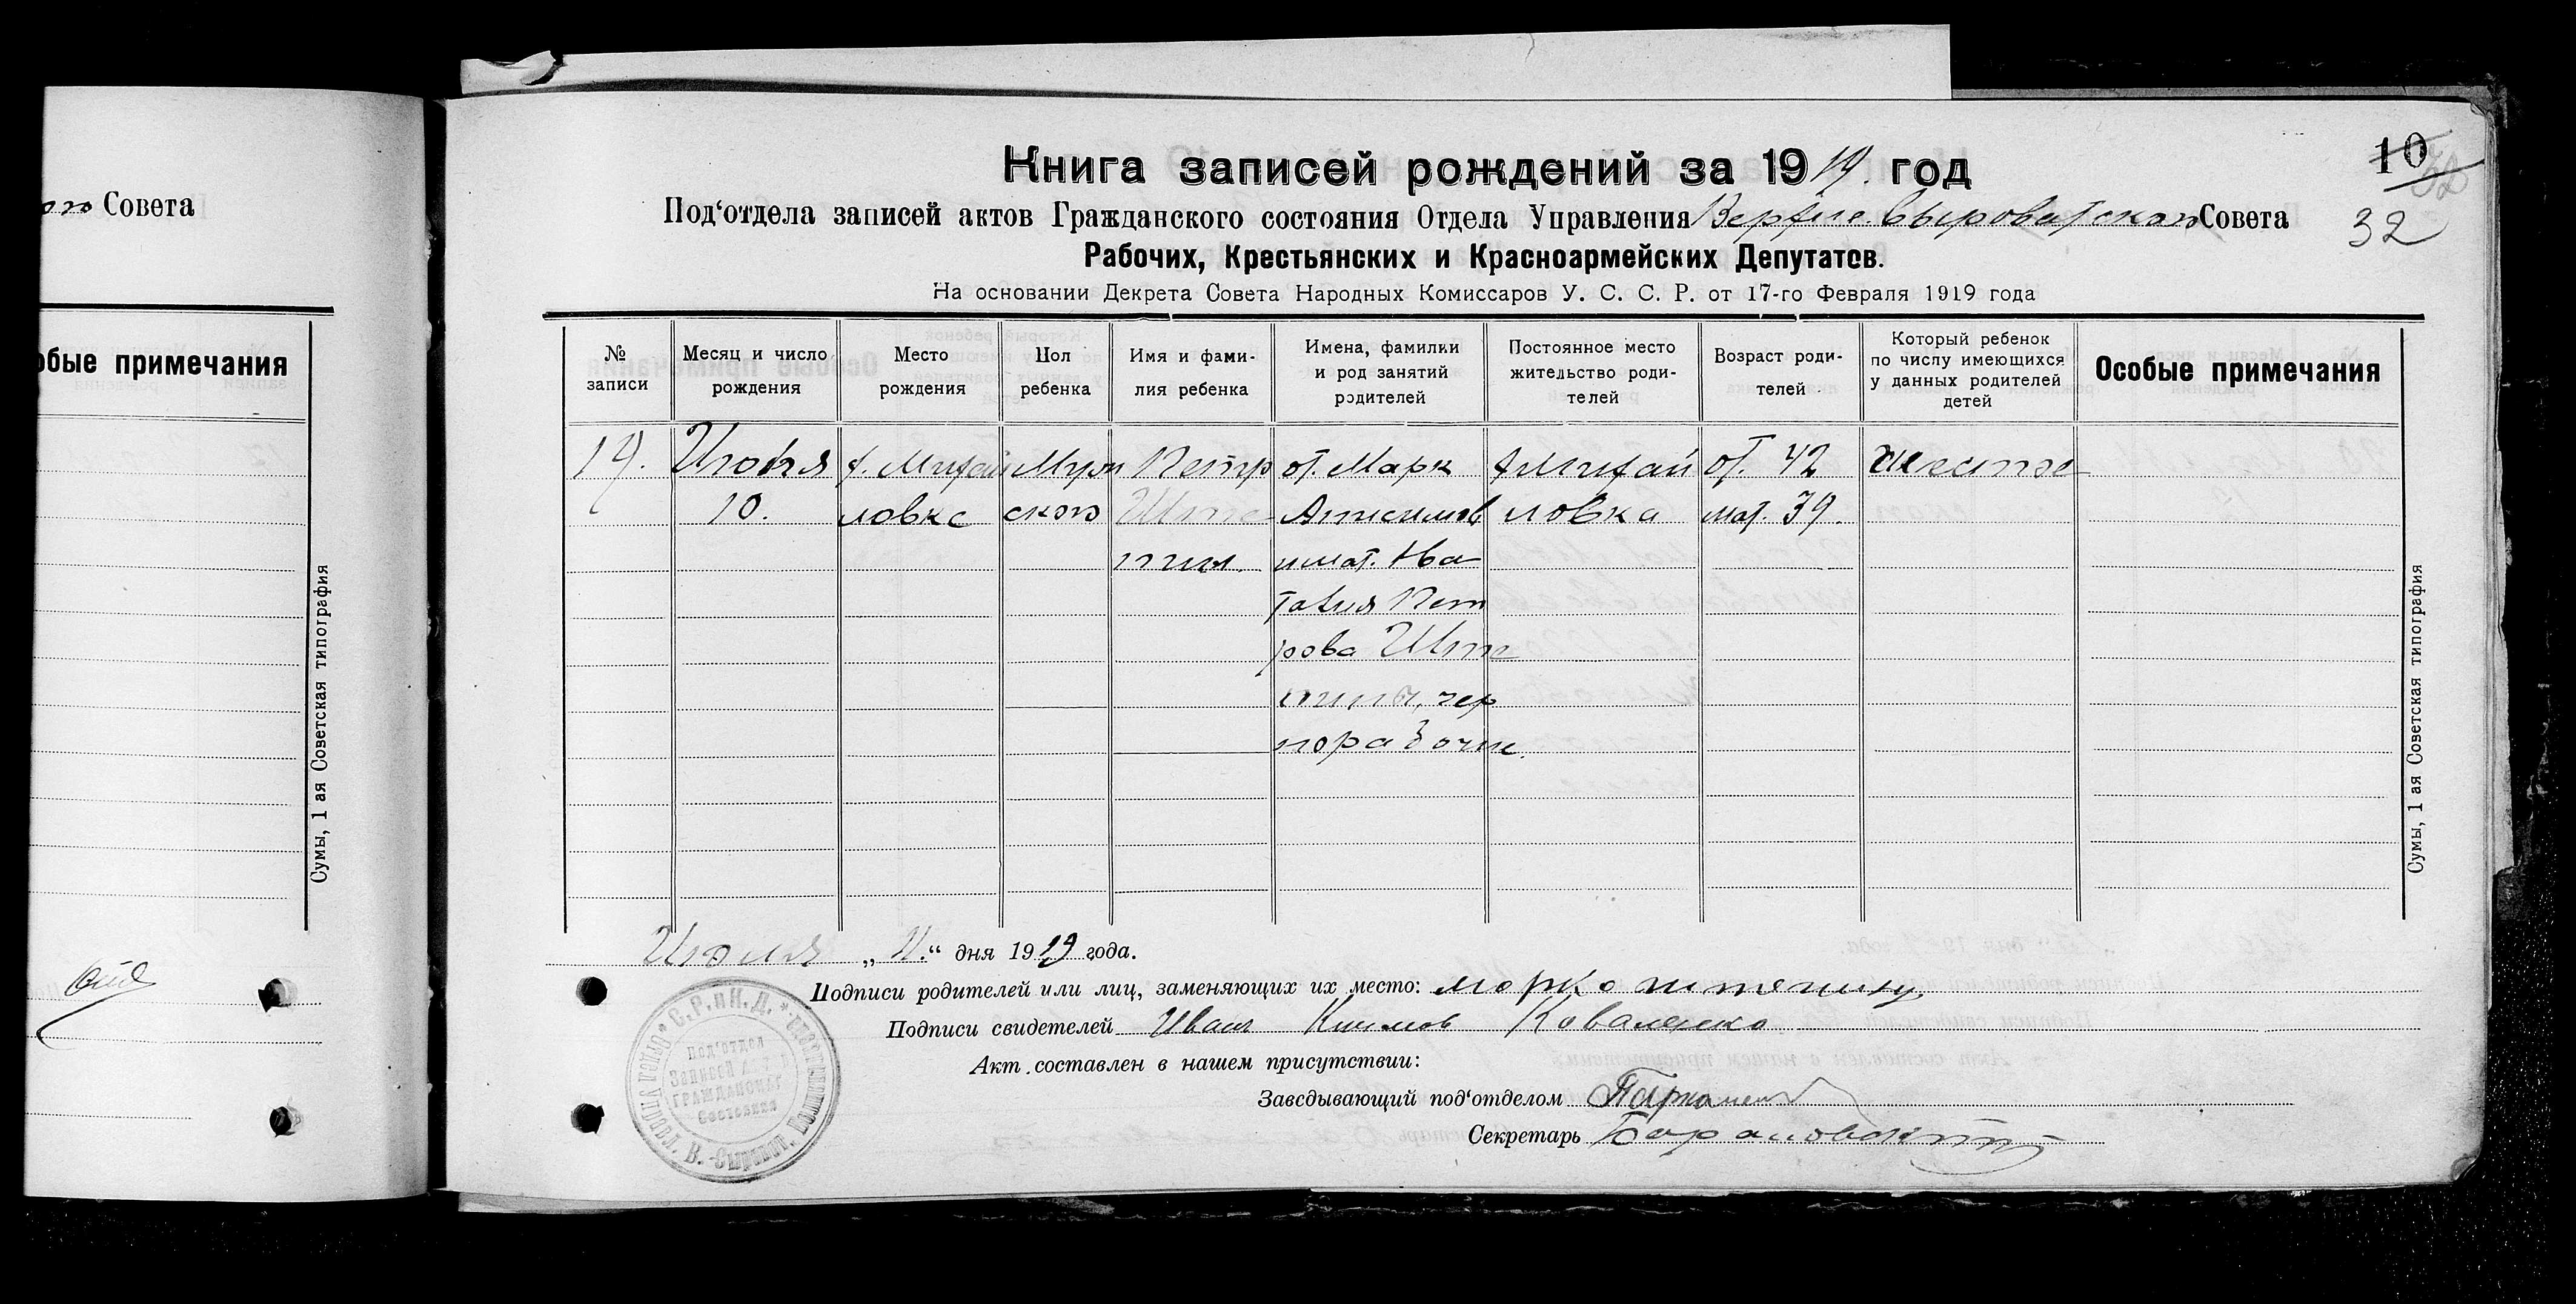 ого Совета
обые примечания
Сумы, 1 ая Советская типография
10
32
Книга записей рождений за 1919. год
Под‘отдела записей актов Гражданского состояния Отдела Управления Верхне-Сыроватского Совета
Рабочих, Крестьянских и Красноармейских Депутатов.
На основании Декрета Совета Народных Комиссаров У. С. С. Р. от 17-го Февраля 1919 года
№ записи
Месяц и число рождения
Место рождения
Пол ребенка
Имя и фамилия ребенка
Имена, фамилии и род занятий родителей
Постоянное место жительство родителей
Возраст родителей
Который ребенок по числу имеющихся у данных родителей детей
Особые примечания
19.
Июля
10.
х. Михай
ловке
Муж
ского
Петр
Ште
пин.
от. Марк
Анисимов
и мат. На
талия Пет
рова Ште
пины, чер
норабочие.
х Михай
ловка
от. 42
мат. 39.
шестое
Сумы, 1 ая Советская типография
Июля „11.“ дня 1919 года.
Подписи родителей или лиц, заменяющих их место: Марко
Подписи свидетелей Иван Климов Коваленко
Акт составлен в нашем присутствии:
Заведывающий под‘отделом
Секретарь Барановский
С. Р. и К. Д.
Под‘отдел
Записей
Гражданског
Состояния
В.-Сыроват.